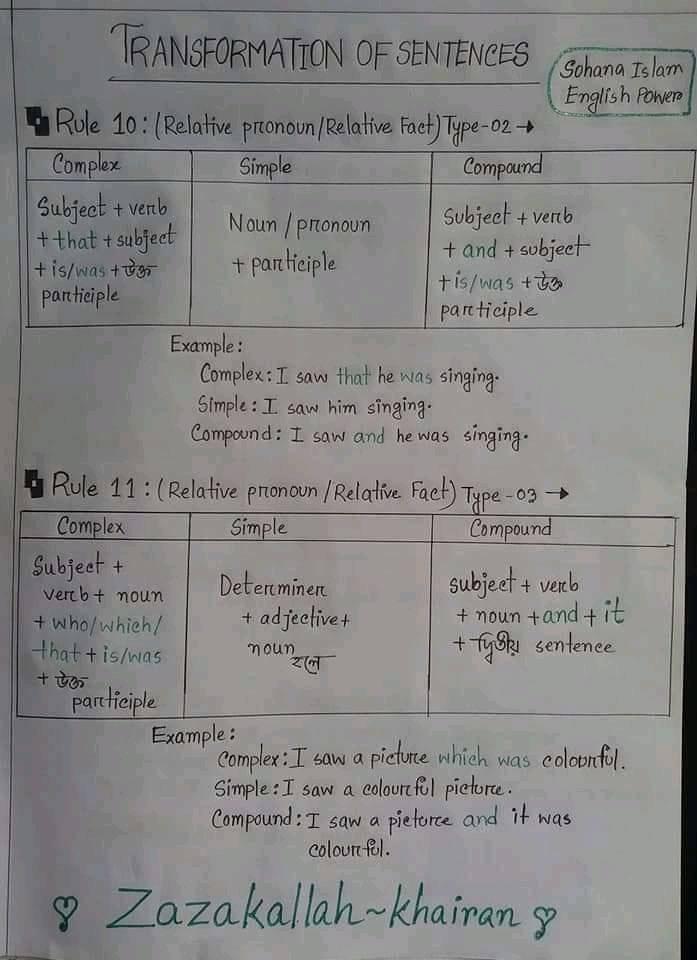 TRANSFORMATION OF SENTENCES
Sohana Islam
English Power
Rule 10: (Relative pronoun/Relative Fact) Type-02→
Complex
Simple
Compound
Subject + verb
+ that + subject
+ is/was + উক্ত
participle
Noun / pronoun
+ participle
Subject + verb
+ and + subject
+ is/was + উক্ত
participle
Example:
Complex: I saw that he was singing.
Simple: I saw him singing.
Compound: I saw and he was singing.
Rule 11: (Relative pronoun/Relative Fact) Type-03→
Complex
Simple
Compound
Subject +
verb + noun
+ who/which/
that + is/was
+ উক্ত
participle
Determiner
+ adjective +
noun হলে
subject + verb
+ noun + and + it
+ দ্বিতীয় sentence
Example:
Complex: I saw a picture which was colourful.
Simple: I saw a colourful picture.
Compound: I saw a picture and it was
colourful.
Zazakallah~khairan